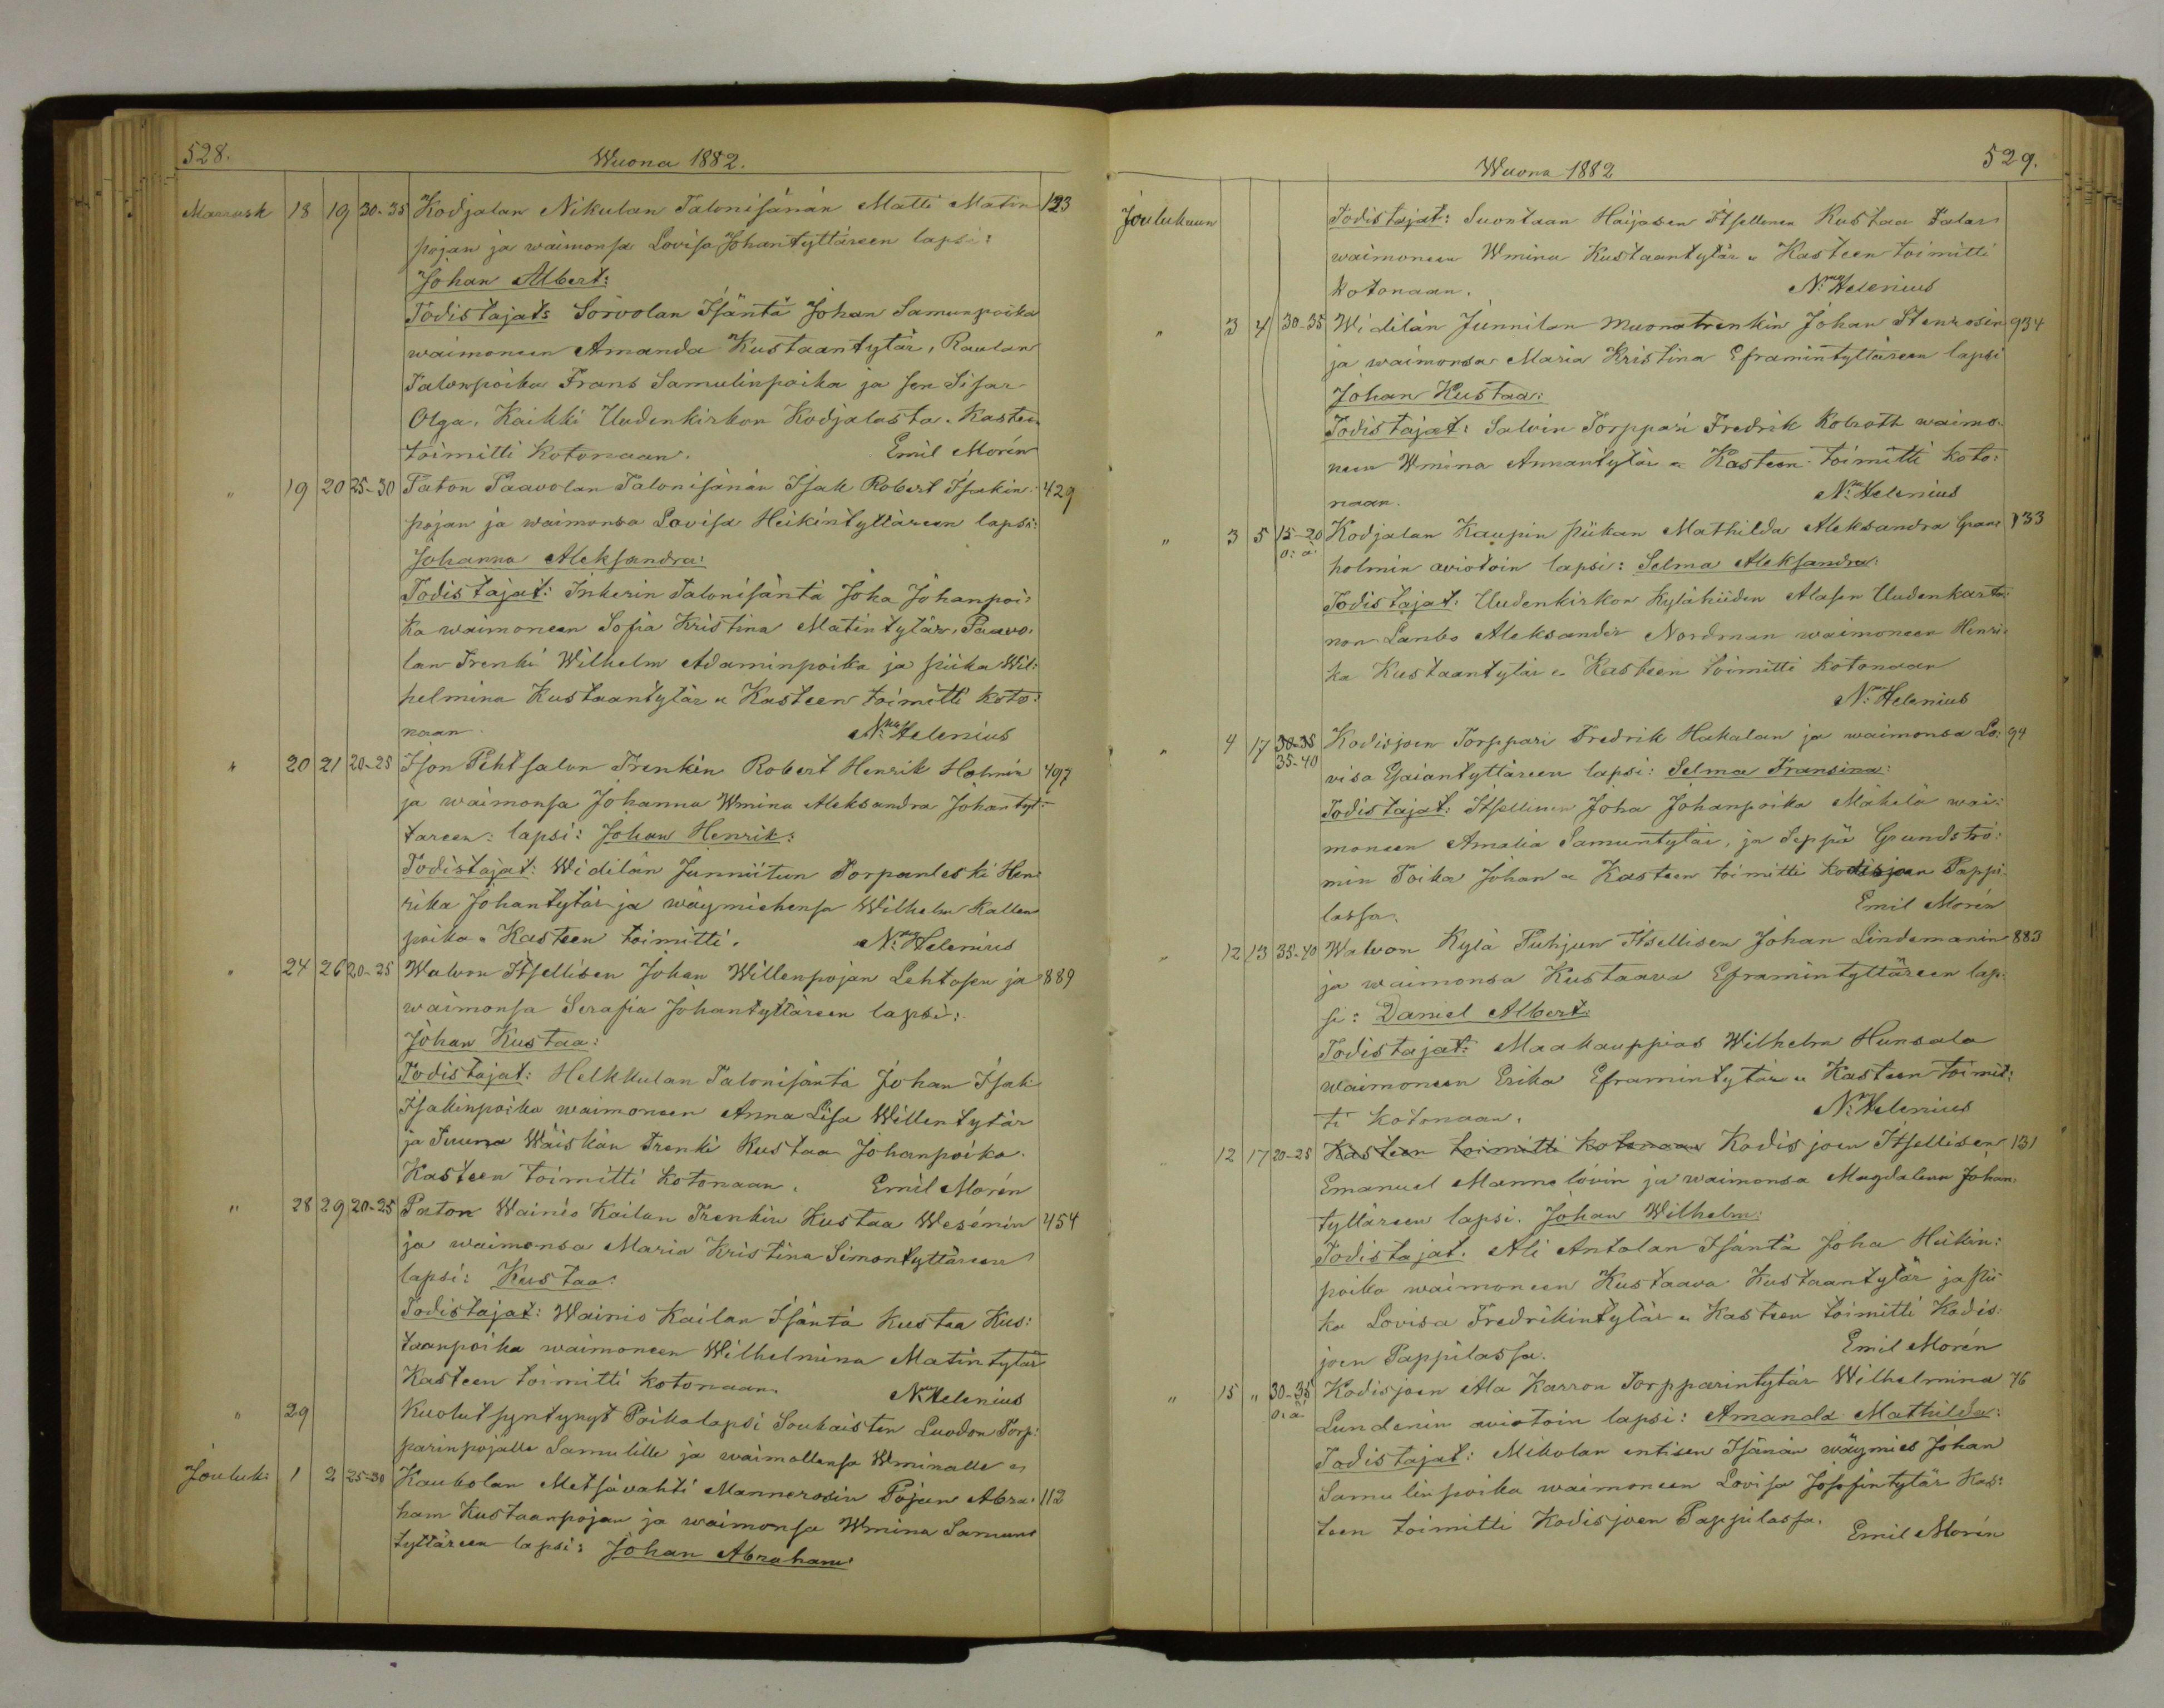 528.
Wuona 1882.
Marrask 18 19 30-35 Kodjalan Nikulan Talonisänän Matti Matin 123
pojan ja waimonsa Lovisa Johantyttäreen lapsi:
Johan Albert:
Todistajat: Sorvolan Isäntä Johan Samunpoika
waimoneen Amanda Kustaantytär, Raulan
Talonpoika Frans Samulinpoika ja sen Sisar
Olga. Kaikki Uudenkirkon Kodjalasta. Kasteen
toimitti Kotonaan. Emil Morén
" 19 20 25-30 Taton Paavolan Talonisänän Isak Robert Isakin: 429
pojan ja waimonsa Lovisa Heikintyttäreen lapsi:
Johanna Aleksandra:
Todistajat: Inkerin Talonisäntä Joha Johanpoi:
ka waimoneen Sofia Kristina Matintytär, Paavo:
lan Trenki Wilhelm Adaminpoika ja piika Wil:
helmina Kustaantytär " Kasteen toimitti koto:
naan. N: Helenius
" 20 21 20-25 Ison Pehtsalon Trenkin Robert Henrik Holmin 497
ja waimonsa Johanna Wmina Aleksandra Johantyt:
täreen: lapsi: Johan Henrik:
Todistajat: Widilän Junnütun Torpanleski Hen:
rika Johantytär ja wäymiehensa Wilhelm Kallen
poika " Kasteen toimitti. N: Helenius
" 24 26 20-25 Walwon Itsellisen Johan Willenpojan Lehtosen ja 889
waimonsa Serafia Johantyttäreen lapsi:
Johan Kustaa:
Todistajat: Helkkulan Talonisäntä Johan Isak
Isakinpoika waimoneen Anna Lisa Willentytär
ja Wäiskän trenki Kustaa Johanpoika.
Kasteen toimitti kotonaan. Emil Morén
" 28 29 20-25 Paton Wainio Kailan Trenkin Kustaa Wesénin 454
ja waimonsa Maria Kristina Simontyttäreen
lapsi: Kustaa:
Todistajat: Wainio Kailan Isäntä Kustaa Kus:
taanpoika waimoneen Wilhelmina Matintytär
Kasteen toimitti kotonaan. N: Helenius
" 29 Kuolut syntynyt Poikalapsi Soukaisten Luodon Torp:
parinpojalle Samulille ja waimollensa Wminalle "
Jouluk: 1 2 25-30 Kaukolan Metsävahti Mannerosin Pojan Abra: 112
ham Kustaanpojan ja waimonsa Wmina Samuns
tyttäreen lapsi: Johan Abraham:
529.
Wuona 1882
Joulukuun Todistajat: Suontaan Haijasen Itsellinen Kustaa Salar
waimoneen Wmina Kustaantytär " Kasteen toimitti
kotonaan. N: Helenius
" 3 4 30-35 Widilän Junnilan Muonatrenkin Johan Stenrosin 934
ja waimonsa Maria Kristina Eframintyttäreen lapsi
Johan Kustaa:
Todistajat: Salvin Torppari Fredrik Roloth waimo:
neen Wmina Annantytär " Kasteen toimitti koto:
naan. N: Helenius
" 3 5 15-20 Kodjalan Kaupin piikan Mathilda Aleksandra Gran: 133
o: ä: holmin aviotoin lapsi: Selma Aleksandra:
Todistajat: Uudenkirkon Kylähiiden Alasen Uudenkarta:
non Lanbo Aleksander Nordman waimoneen Henri:
ka Kustaantytär " Kasteen toimitti kotonaan
N: Helenius
" 4 17 30-35 Kodisjoen Torppari Fredrik Hakalan ja waimonsa Lo: 94
35-40 visa Esaiantyttäreen lapsi: Selma Fransina:
Todistajat: Itsellinen Joha Johanpoika Mäkelä wai:
moneen Amalia Samuntytär, ja Seppä Grundströ:
min Poika Johan " Kasteen toimitti Kodisjoen Pappi
lassa. Emil Morén
" 12 13 35-40 Walwon Kylä Puhjun Itsellisen Johan Lindemanin 883
ja waimonsa Kustaava Eframintyttäreen lap:
si: Daniel Albert:
Todistajat: Maakauppias Wilhelm Hunsala
waimoneen Erika Eframintytär " Kasteen toimit:
ti kotonaan. N: Helenius
" 12 17 20-25 Kasteen toimitti kotonaan Kodisjoen Itsellisen 131
Emanuel Mannelövin ja waimonsa Magdalena Johan:
tyttäreen lapsi. Johan Wilhelm:
Todistajat. Ali Antolan Isäntä Joha Heikin:
poika waimoneen Kustaava Kustaantytär ja pii
ka Lovisa Fredrikintytär " Kasteen toimitti Kodis:
joen Pappilassa. Emil Morén
" 15 " 30-35 Kodisjoen Ala Karron Torpparintytär Wilhelmina 76
o: ä: Lundenin aviotoin lapsi: Amanda Mathilda:
Todistajat: Mikolan entisen Isänän wäymies Johan
Samulinpoika waimoneen Lovisa Josefintytär Kas:
teen toimitti Kodisjoen Pappilassa. Emil Morén